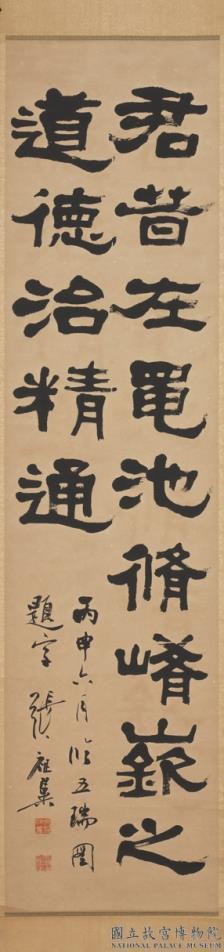 君昔在黽池脩崤嶔之
道德治精通
丙申六月臨五瑞圖
題字 張祖集
國立故宮博物院
NATIONAL PALACE MUSEUM